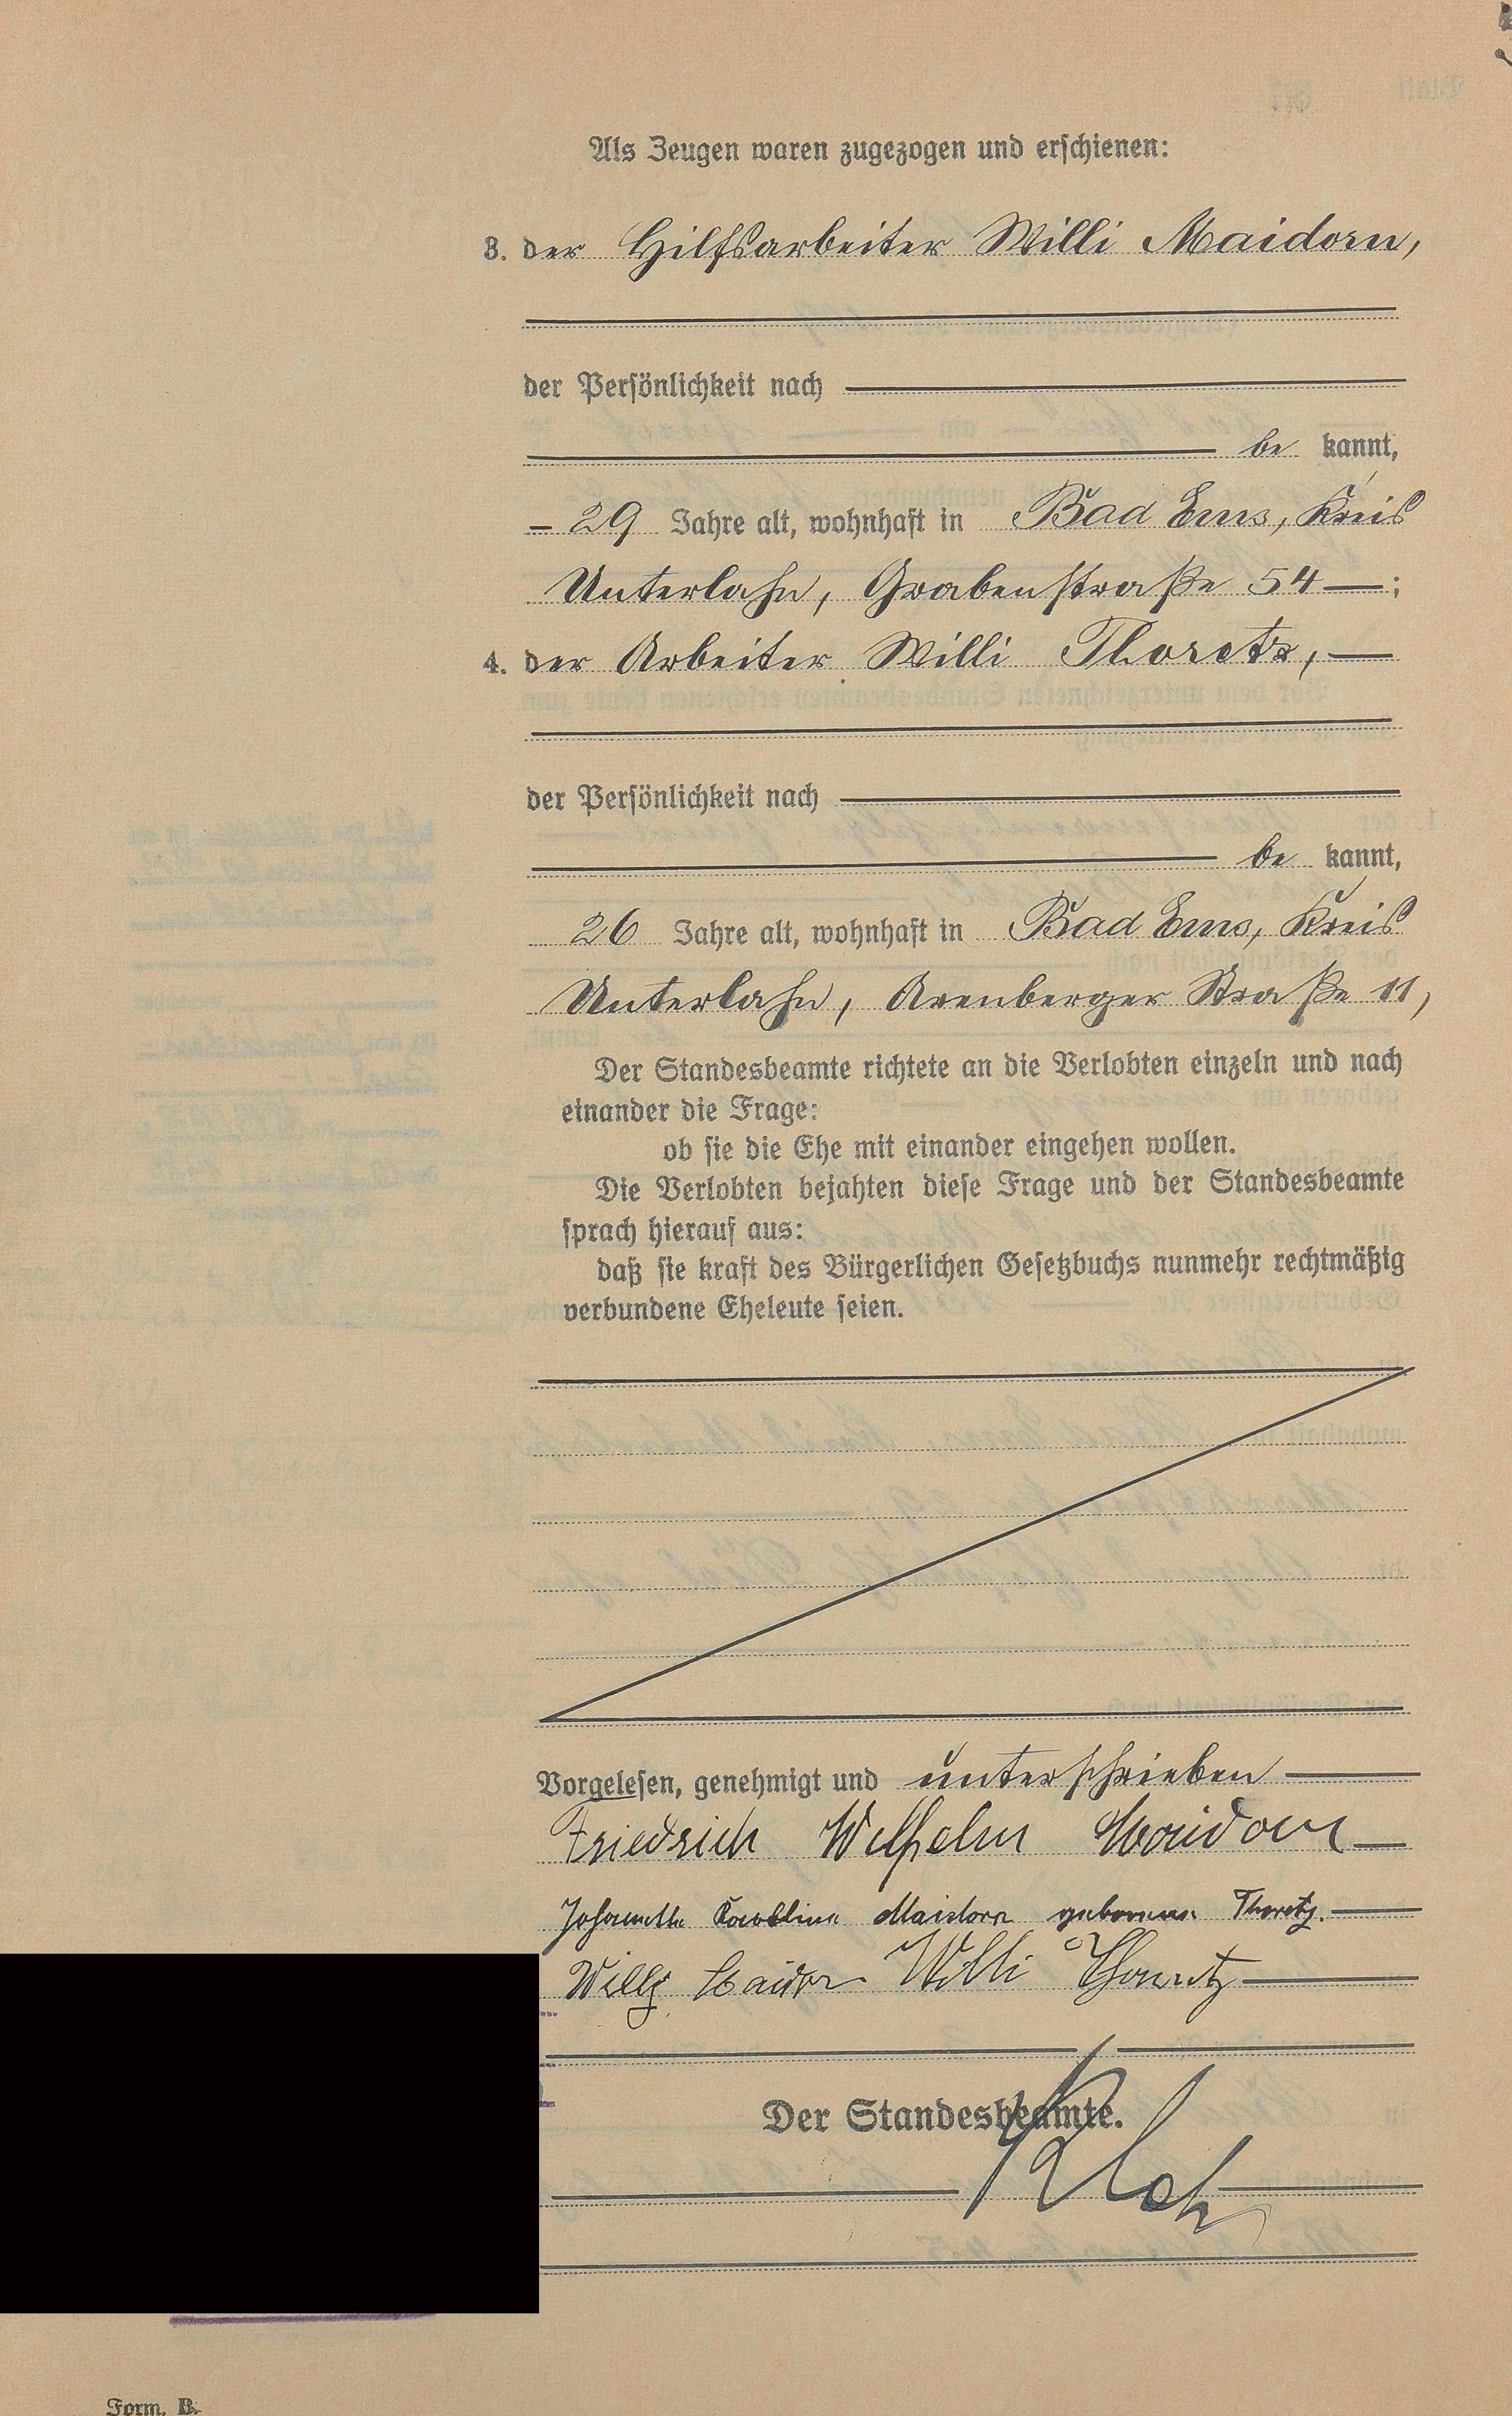 Als Zeugen waren zugezogen und erschienen:
3. der Hilfsarbeiter Willi Maidorn,
der Persönlichkeit nach
be kannt,
29 Jahre alt, wohnhaft in Bad Ems, Kreis
Unterlahn, Grabenstraße 54 —;
4. der Arbeiter Willi Thoretz, —
der Persönlichkeit nach
be kannt,
26 Jahre alt, wohnhaft in Bad Ems, Kreis
Unterlahn, Arenberger Straße 11,
Der Standesbeamte richtete an die Verlobten einzeln und nach
einander die Frage:
ob sie die Ehe mit einander eingehen wollen.
Die Verlobten bejahten diese Frage und der Standesbeamte
sprach hierauf aus:
daß sie kraft des Bürgerlichen Gesetzbuchs nunmehr rechtmäßig
verbundene Eheleute seien.
Vorgelesen, genehmigt und unterschrieben
Friedrich Wilhelm Maidorn
Johanette Karoline Maidorn geborene Thoretz.
Willy Maidorn Willi Thoretz
Der Standesbeamte.
Form. B.